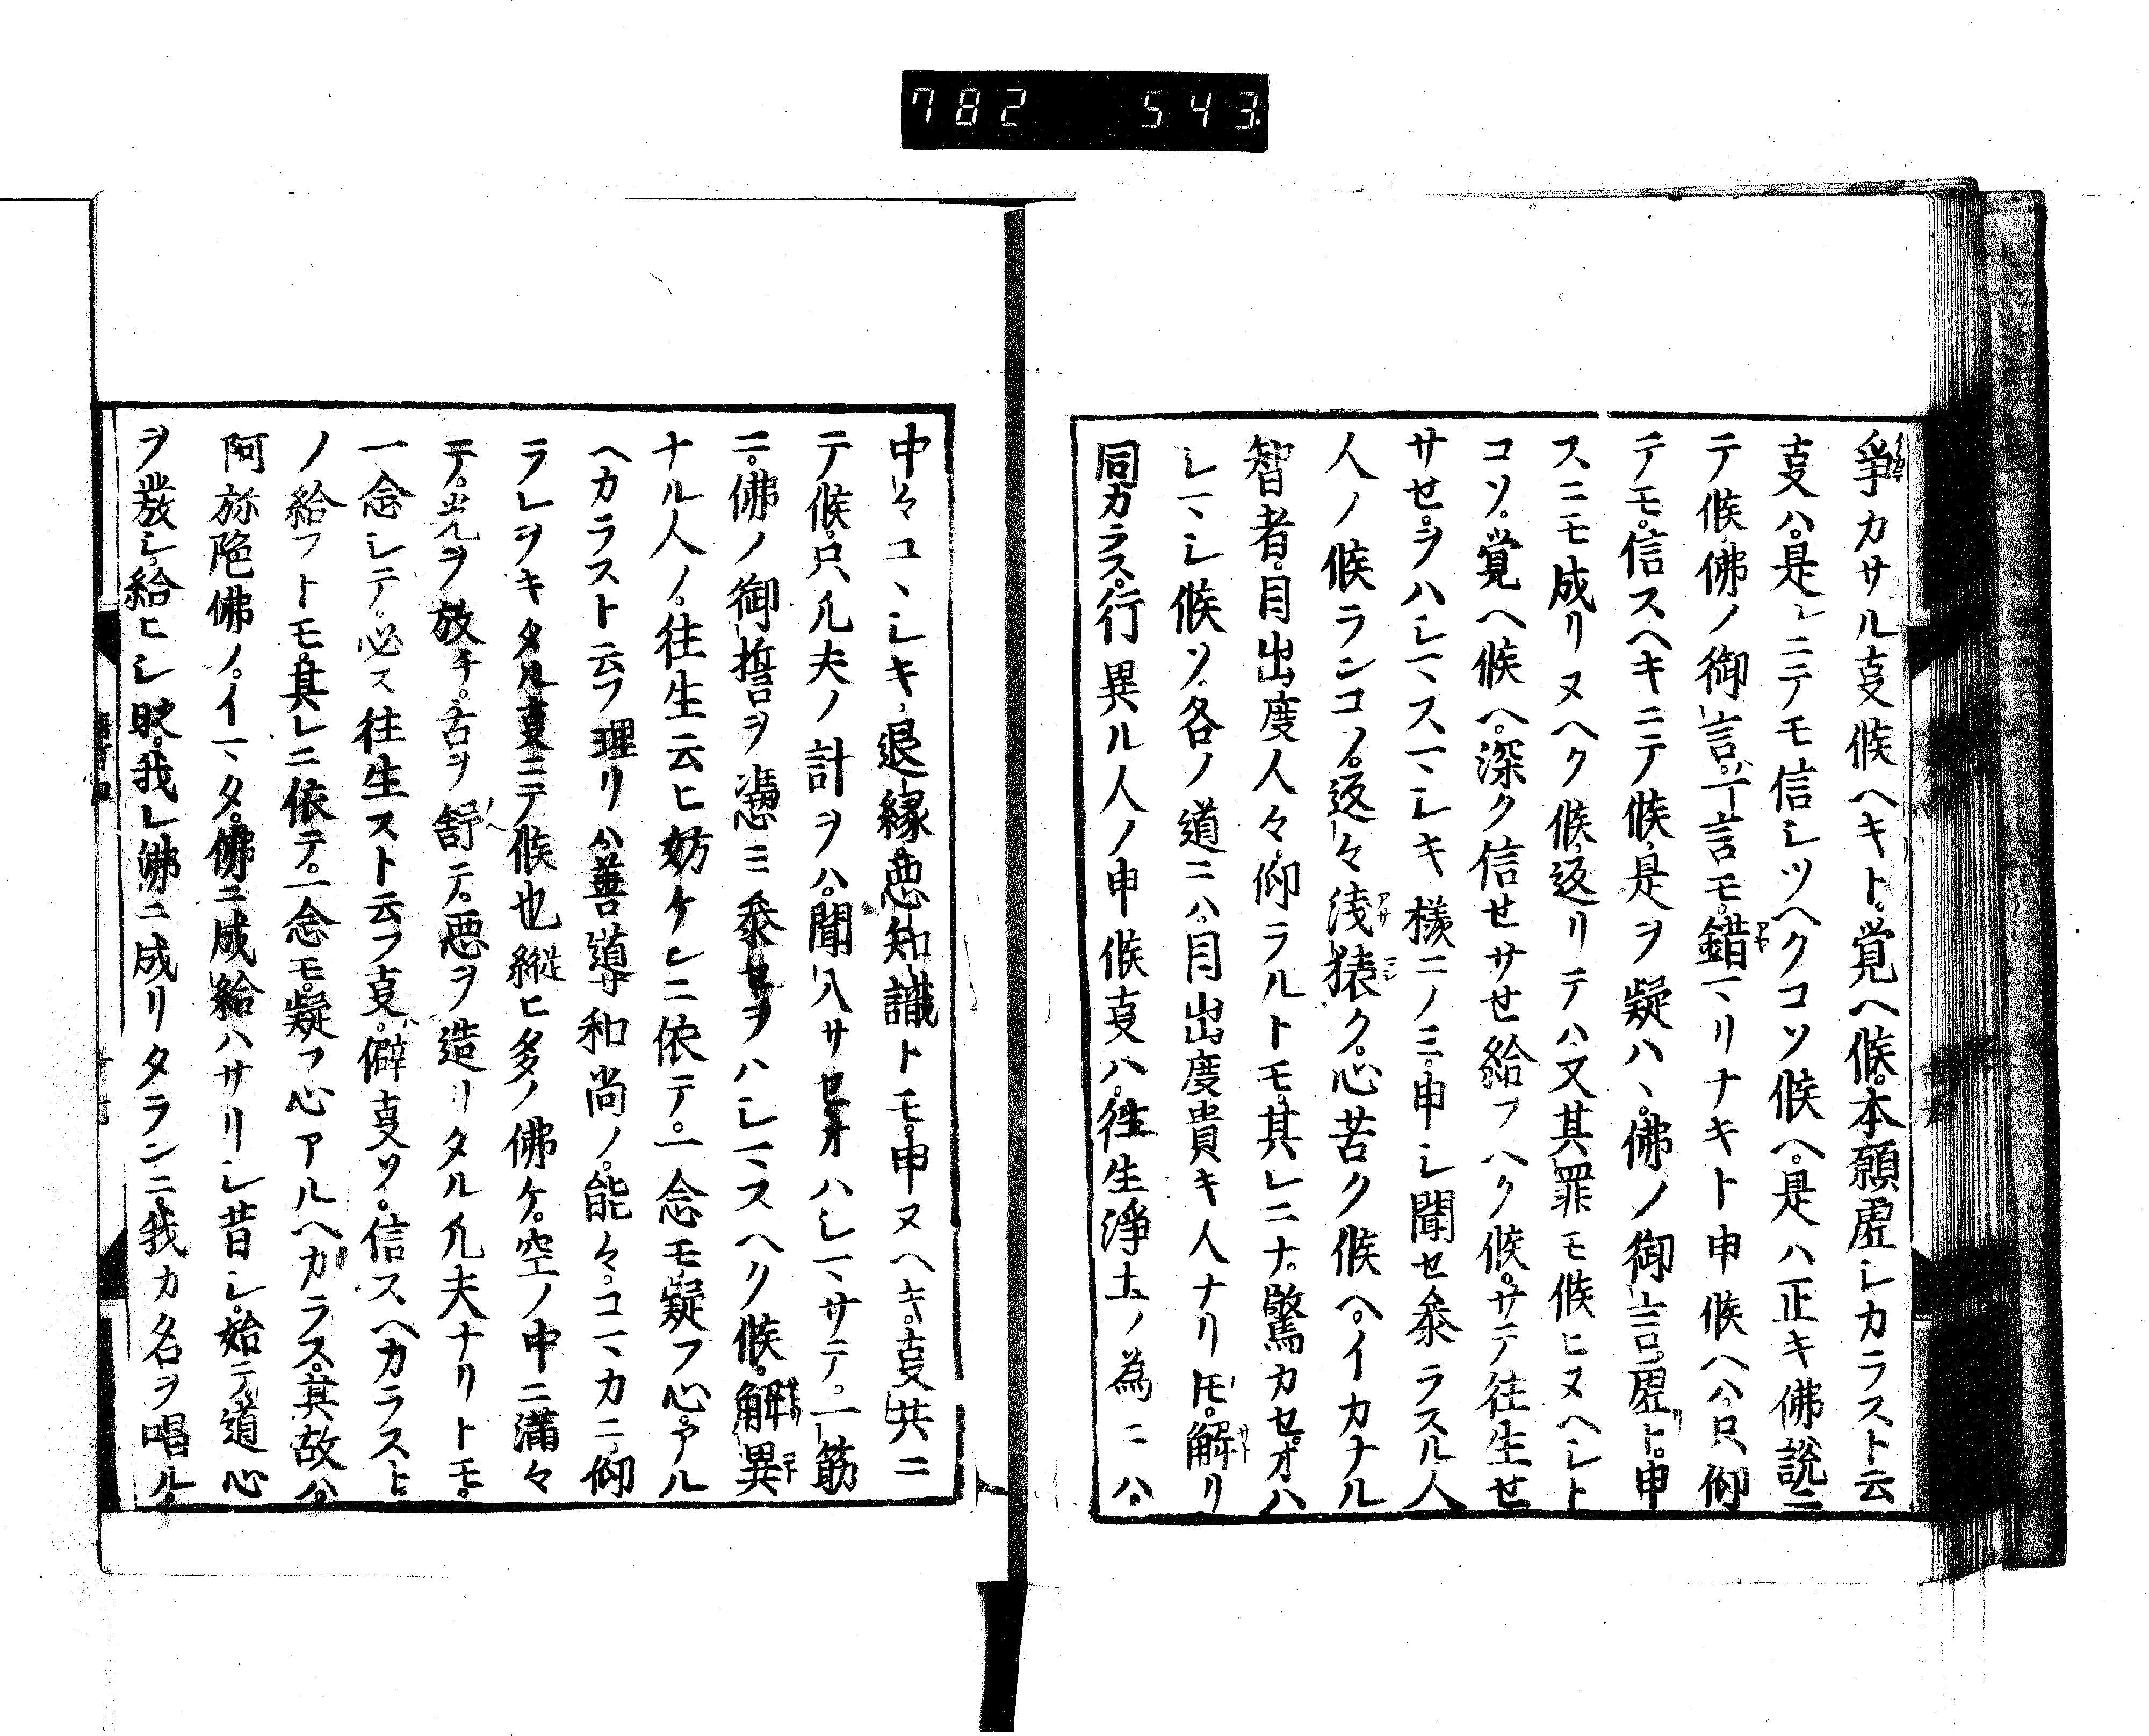 782 543
爭カサル叓候ヘキト。覚ヘ候。本願虛シカラスト云
叓ハ。是レニテモ信シツヘクコソ候ヘ。是ハ正キ佛說ニ
テ候。佛ノ御言。一言モ。錯マリナキト申候ヘハ。只仰
テモ。信スヘキニテ候。是ヲ疑ハヽ。佛ノ御言。虛ト。申
スニモ成リヌヘク候。返リテハ。又其罪モ候ヒヌヘシト
コソ。覚ヘ候ヘ。深ク信セサセ給フヘク候。サテ往生セ
サセ。ヲハシマスマシキ樣ニノミ。申シ聞セ叅ラスル人
人ノ候ランコソ。返々淺猿ク。心苦ク候ヘ。イカナル
智者。目出度人々。仰ラルトモ。其レニナ。驚カセ。オハ
シマシ候ソ。各ノ道ニハ。目出度貴キ人ナリトモ。解リ
同カラス。行異ル人ノ申候叓ハ。徃生淨土ノ為ニハ。
中々ユヽシキ。退縁悪知識トモ。申ヌヘキ。叓共ニ
テ候。只凡夫ノ計ヲハ。聞入サセ。オハシマサテ。一筋
ニ。佛ノ御誓ヲ憑ミ叅セヲハシマスヘク候。解異
ナル人ノ。往生云ヒ妨ケンニ依テ。一念モ疑フ心。アル
ヘカラスト云フ理リハ。善導和尚ノ。能々。コマカニ。仰
ラレヲキタル叓ニテ候也。縦ヒ多ノ佛ケ。空ノ中ニ滿々
テ。光ヲ放チ。舌ヲ舒テ。悪ヲ造リタル凡夫ナリトモ。
一念シテ。必ス往生スト云フ叓。僻叓ソ。信スヘカラスト
ノ給フトモ。其レニ依テ。一念モ。疑フ心アルヘカラス。其故ハ。
阿弥陀佛ノ。イマタ。佛ニ成給ハサリシ昔シ。始テ道心
ヲ發シ給ヒシ時。我レ佛ニ成リタランニ。我カ名ヲ唱ル